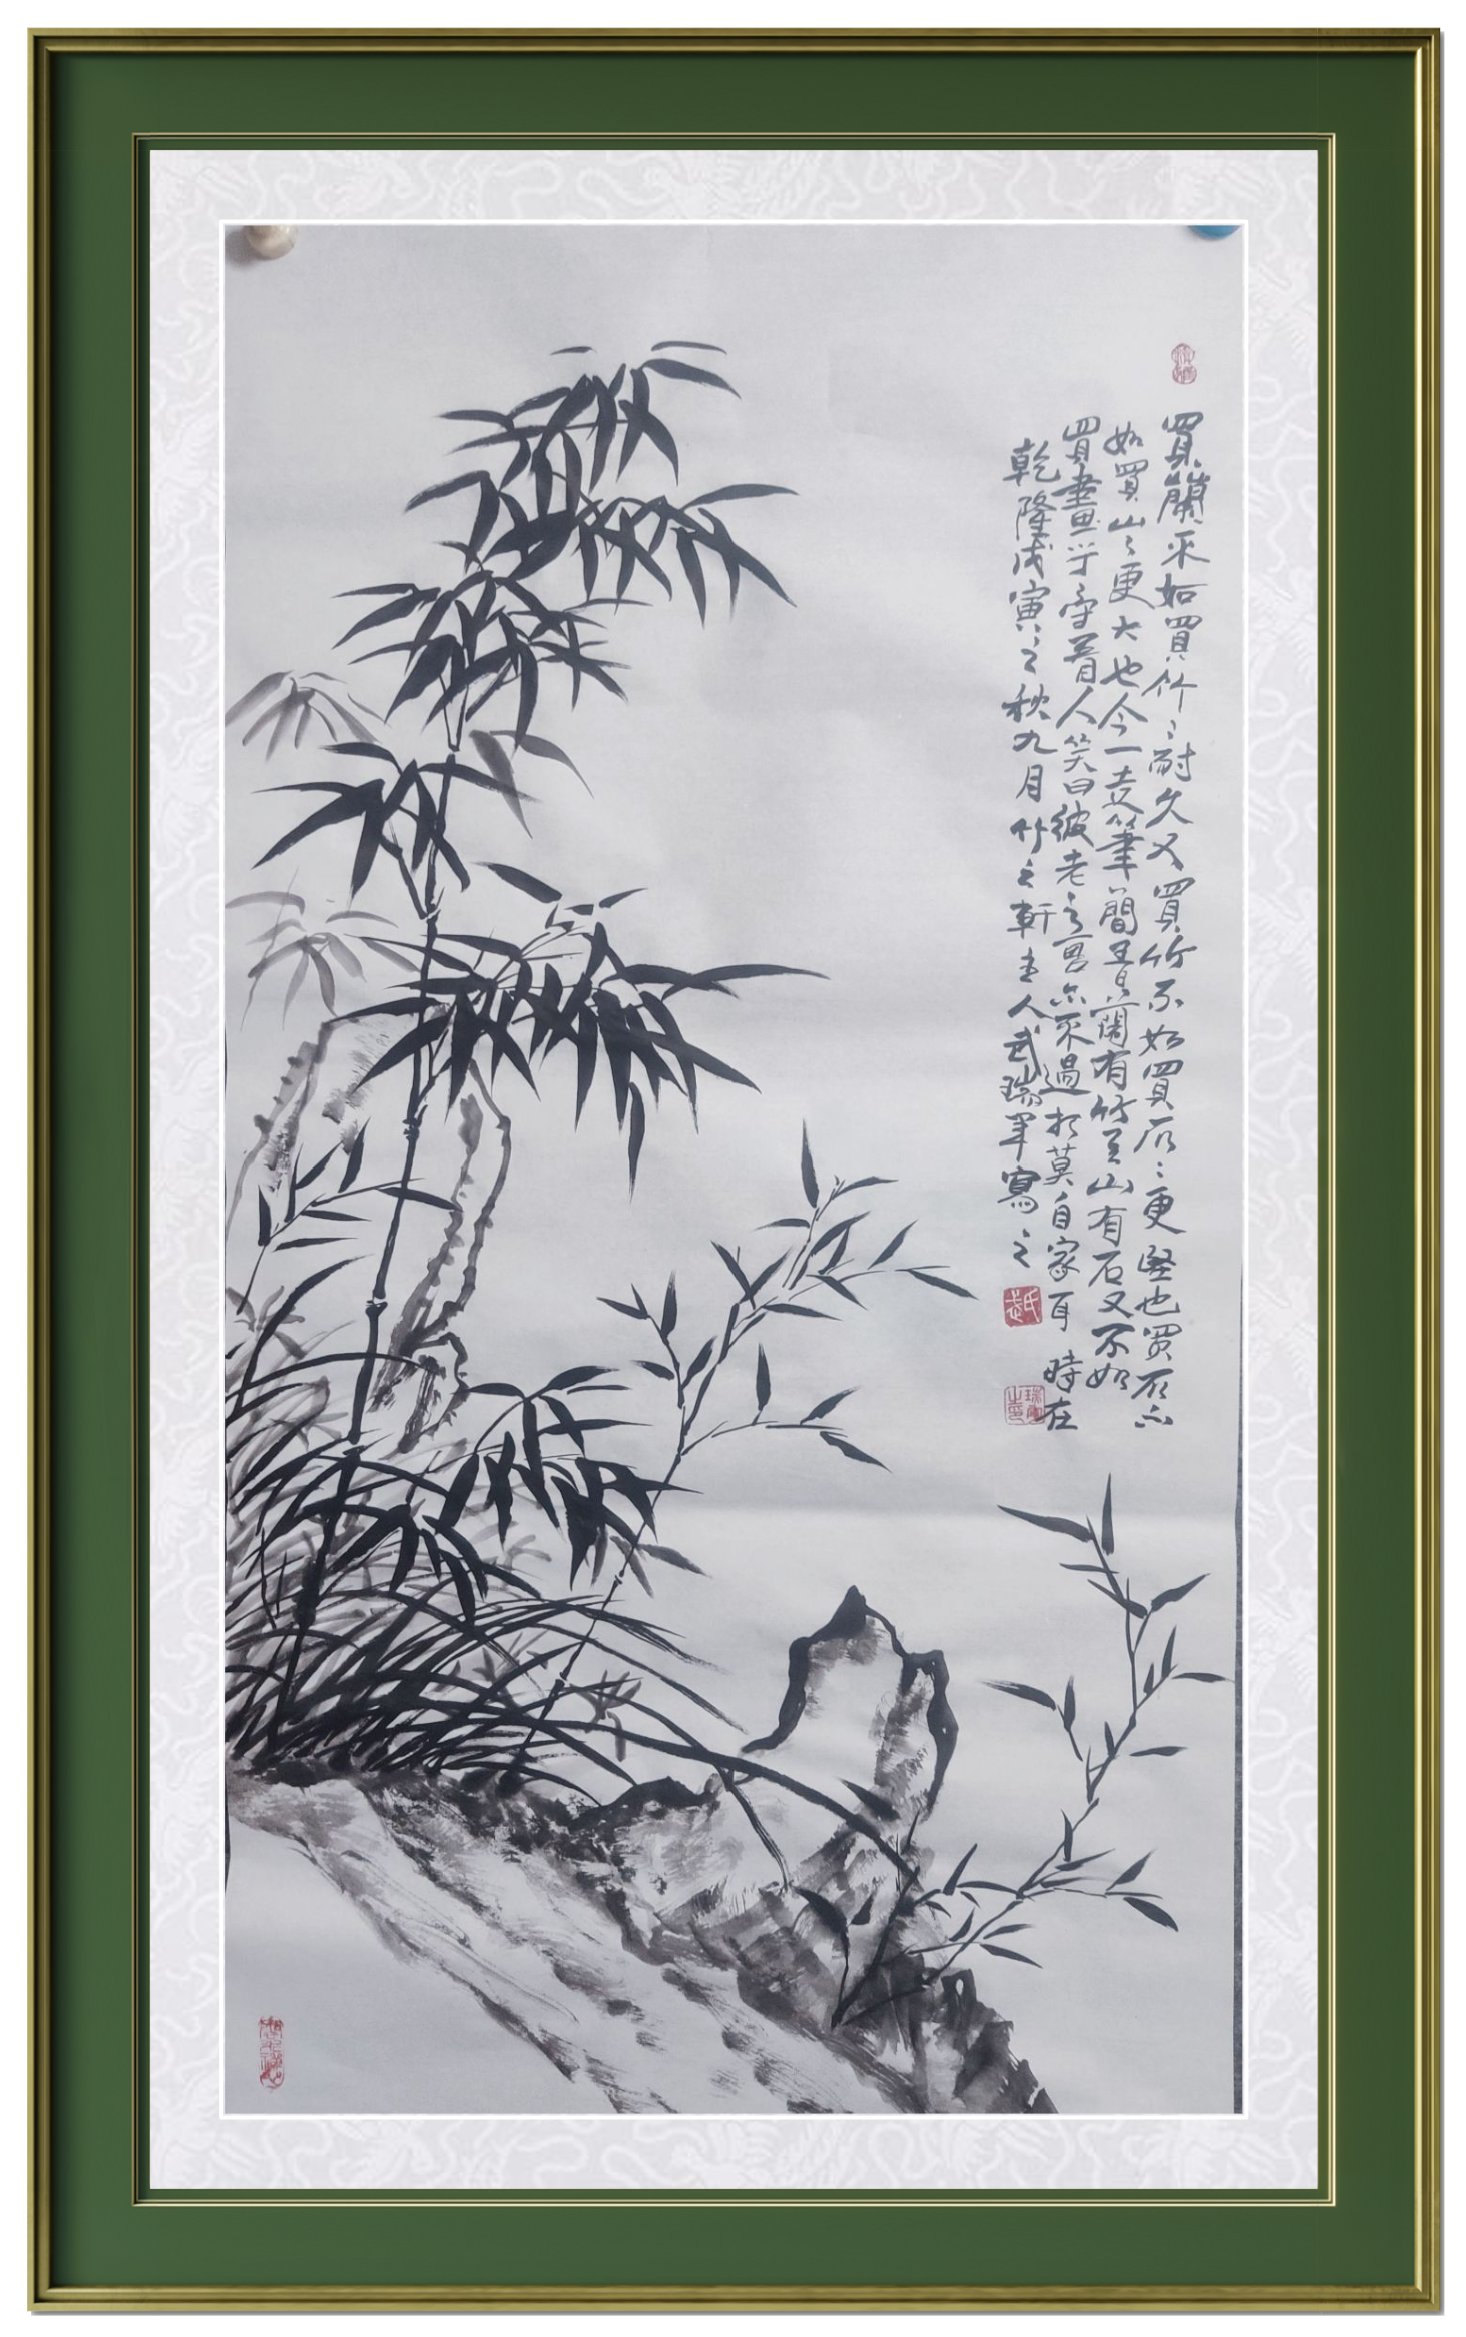 買蘭不如買竹〻耐久又買竹不如買石〻更堅也買石不
如買山〻更大也今一走筆間且具蘭有竹并山有石又不如
買畫乎旁有人笑曰彼老之言亦不過抬莫自家耳 時在
乾隆戊寅之秋九月竹之軒主人武瑞軍寫之
武氏